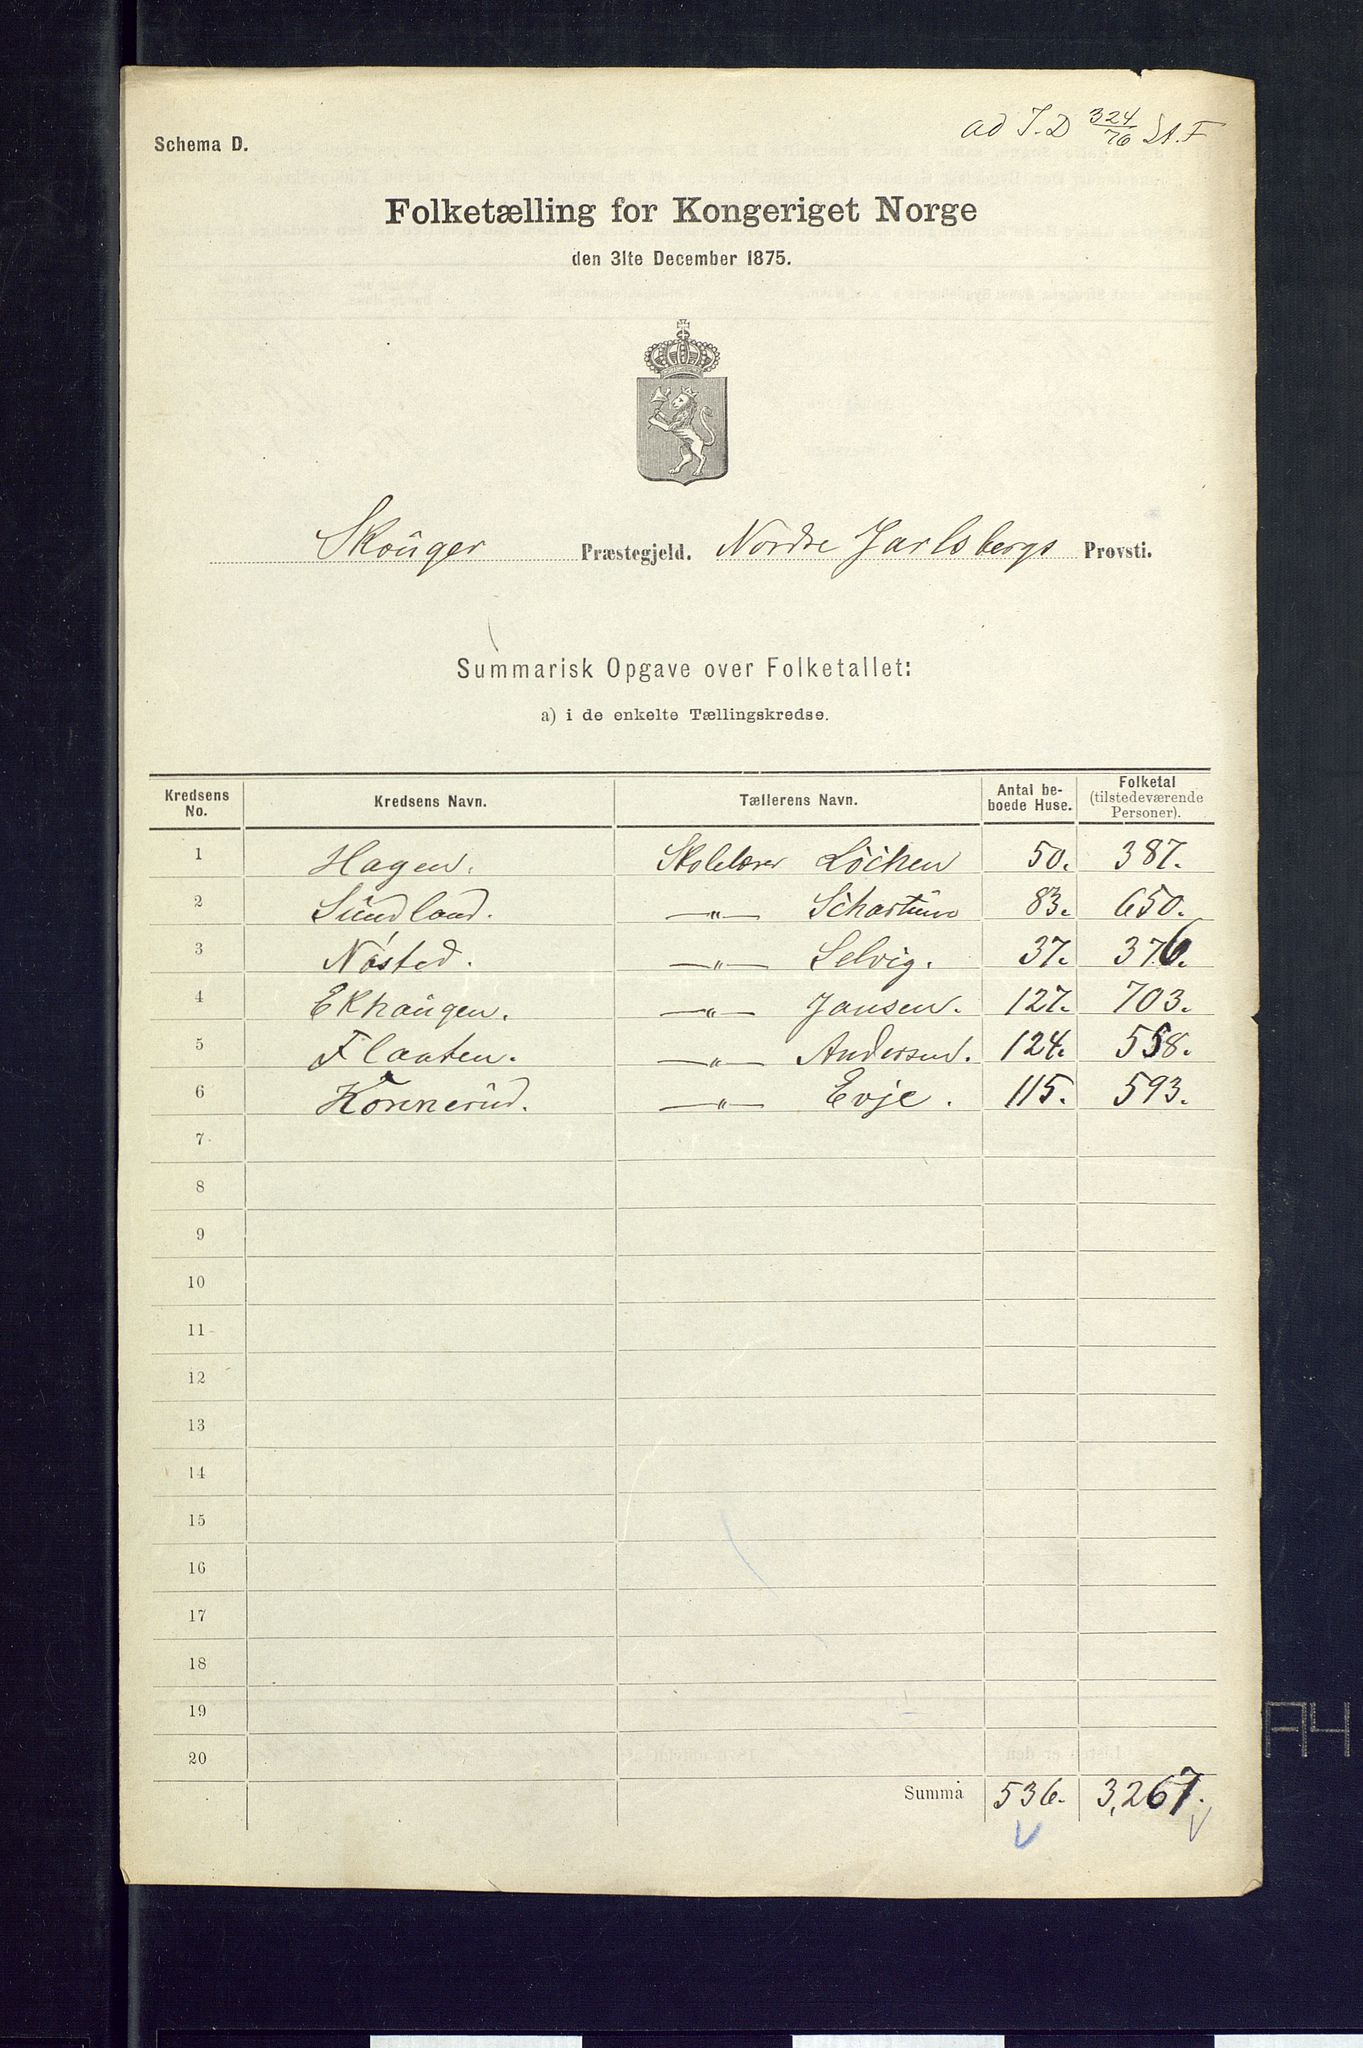 ad J. D 324/76 St. F
Schema D.
Folketælling for Kongeriget Norge
den 31te December 1875.
Skouger Præstegjeld. Nordre Jarlsbergs Provsti.
Summarisk Opgave over Folketallet:
a) i de enkelte Tællingskredse.
Kredsens No. Kredsens Navn. Tællerens Navn. Antal beboede Huse. Folketal (tilstedeværende Personer).
1 Hagen. Skolelærer Löchen 50. 387.
2 Sundland. —"— Schartum 83. 650.
3 Nøsted. —"— Selvig. 37. 376.
4 Ekhaugen. —"— Jansen. 127. 703.
5 Flaaten. —"— Andersen. 124. 558.
6 Konnerud. —"— Evje. 115. 593.
7
8
9
10
11
12
13
14
15
16
17
18
19
20
Summa 536. 3,267.
A4